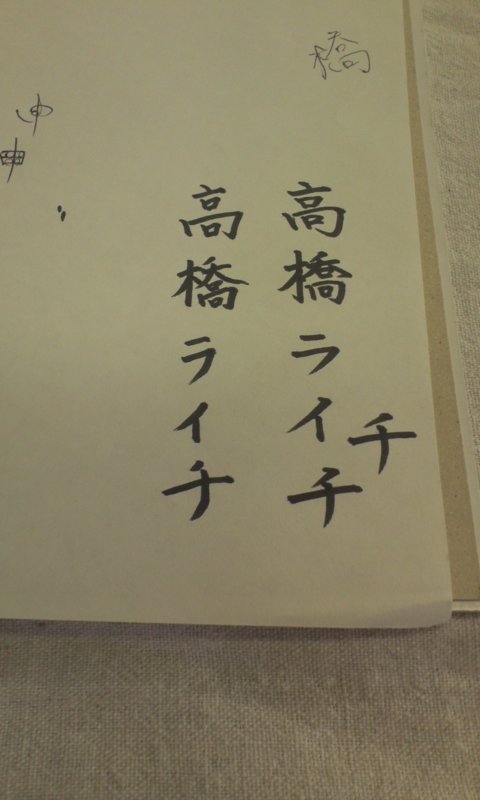 橋
高橋ライチ
チ
高橋ライチ
申
申